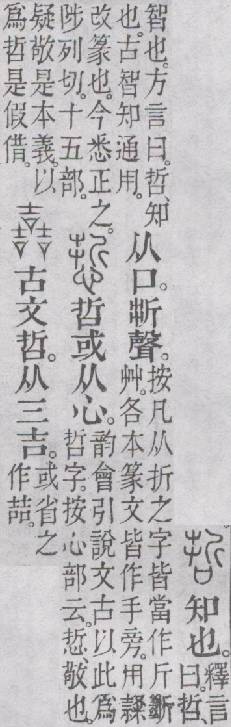 哲知也。釋言曰。哲、
智也。方言曰。哲、知也。古智知通用。从口。折聲。按凡从折之字皆當作斤斷艸。各本篆文皆作手旁。用隸
改篆也。今悉正之。陟列切。十五部。悊哲或从心。韵會引說文古以此爲哲字。按心部云。悊、敬也。
疑敬是本義。以爲哲是假借。嚞古文哲。从三吉。或省之作喆。